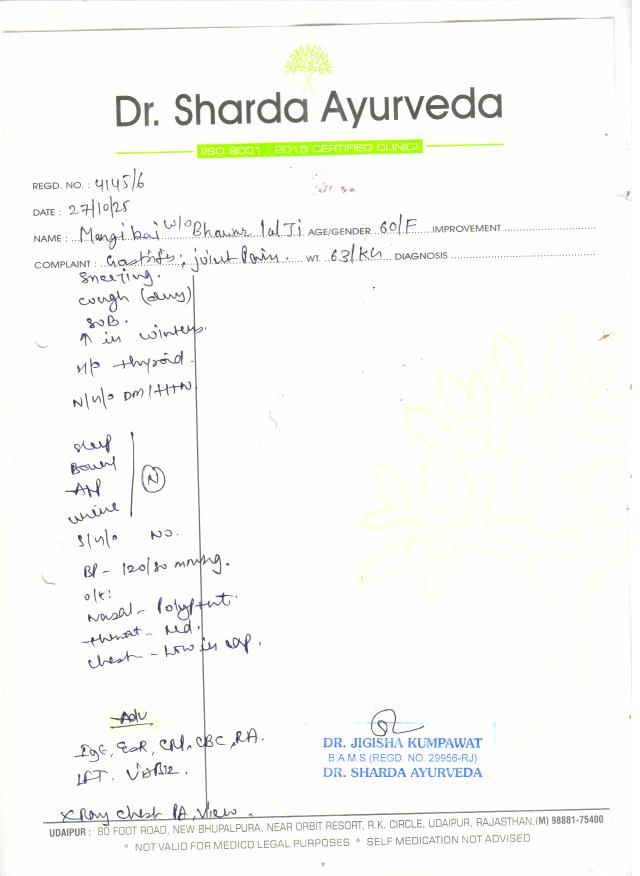 Dr. Sharda Ayurveda
(ISO 9001 : 2015 CERTIFIED CLINIC)
REGD. NO. : 4145/6
DATE : 27/10/25
NAME : Mangi bai w/o Bhawar lal Ji AGE/GENDER 60/F IMPROVEMENT
COMPLAINT : Gastritis, joint Pain. WT. 63/KG DIAGNOSIS
Sneezing.
cough (dry)
SOB.
↑ in winters.
H/O thyroid.
N/H/O DM/HTN
Sleep
Bowel
App
urine
N
S/H/O NO.
BP - 120/80 mmHg.
O/E:
Nasal - Polyp
throat - Red.
chest -
Adv
IgE, ESR, CRP, CBC, RA.
LFT. Vit B12.
X Ray Chest PA, View.
DR. JIGISHA KUMPAWAT
B.A.M.S (REGD. NO. 29956-RJ)
DR. SHARDA AYURVEDA
UDAIPUR : 80 FOOT ROAD, NEW BHUPALPURA, NEAR ORBIT RESORT, R.K. CIRCLE, UDAIPUR, RAJASTHAN.(M) 98881-75400
* NOT VALID FOR MEDICO LEGAL PURPOSES * SELF MEDICATION NOT ADVISED